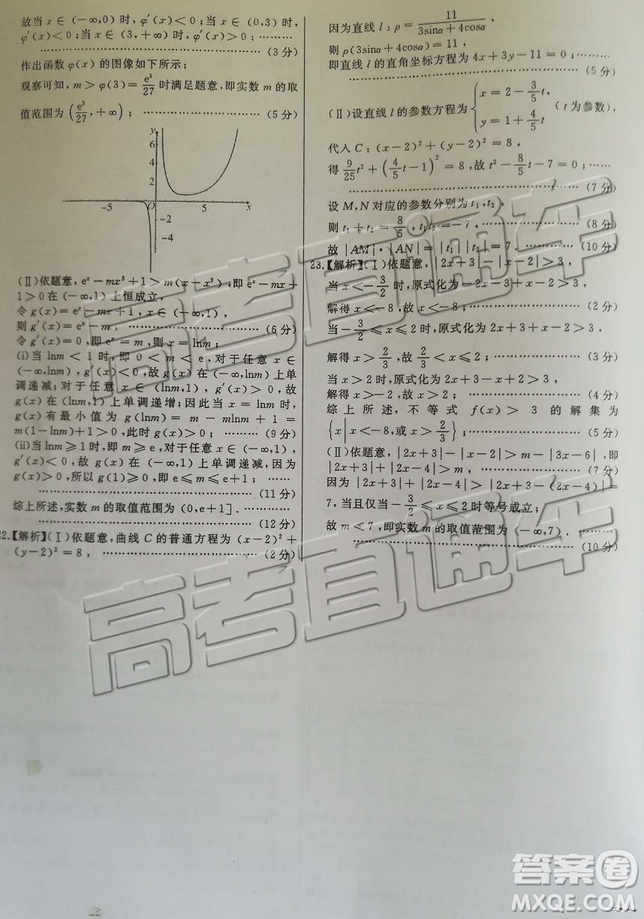 故当 x∈(-∞,0) 时，φ′(x)<0；当 x∈(0,3) 时，
φ′(x)<0；当 x∈(3,+∞) 时，φ′(x)>0；………
……………………………………………… (3 分)
作出函数 φ(x) 的图像如下所示：
观察可知，m>φ(3)=e³/27 时满足题意，即实数 m 的取
值范围为(e³/27,+∞)；……………………… (5 分)
y
6
4
2
-5
O
5
x
-2
-4
(Ⅱ)依题意，eˣ-mx³+1>m(x-x³)，即 eˣ-mx+
1>0 在(-∞,1)上恒成立，
令 g(x)=eˣ-mx+1，x∈(-∞,1)，
则 g′(x)=eˣ-m，…………………………… (6 分)
令 g′(x)=0，则 eˣ=m，则 x=lnm；
(i)当 lnm<1 时，即 0<m<e，对于任意 x∈
(-∞,lnm)，g′(x)<0，故 g(x)在(-∞,lnm)上单
调递减，对于任意 x∈(lnm,1)，g′(x)>0，故
g(x)在(lnm,1)上单调递增；因此当 x=lnm 时，
g(x) 有最小值为 g(lnm)=m-mlnm+1=
m(1-lnm)+1>0，此时 g(x)>0；……… (9 分)
(ii)当 lnm≥1 时，即 m≥e，对于任意 x∈(-∞,1)，
g′(x)<0，故 g(x)在(-∞,1)上单调递减，因为
g(x)>0，所以 g(1)≥0，即 e≤m≤e+1；………
……………………………………………… (11 分)
综上所述，实数 m 的取值范围为(0,e+1]．………
……………………………………………… (12 分)
22.【解析】(Ⅰ)依题意，曲线 C 的普通方程为(x-2)²+
(y-2)²=8，………………………………… (2 分)
因为直线 l：ρ=11/(3sinα+4cosα)，
则 ρ(3sinα+4cosα)=11，
即直线 l 的直角坐标方程为 4x+3y-11=0；………
……………………………………………… (5 分)
(Ⅱ)设直线 l 的参数方程为{x=2-3/5 t, y=1+4/5 t (t 为参数)，
代入 C：(x-2)²+(y-2)²=8，
得 9/25 t²+(4/5 t-1)²=8，故 t²-8/5 t-7=0；………
……………………………………………… (7 分)
设 M,N 对应的参数分别为 t₁,t₂，
则 t₁+t₂=8/5，t₁t₂=-7，……………… (8 分)
故|AM|·|AN|=|t₁||t₂|=7．…………… (10 分)
23.【解析】(Ⅰ)依题意，|2x+3|-|x-2|>3，
当 x<-3/2 时，原式化为-2x-3+x-2>3，
解得 x<-8，故 x<-8；………………… (2 分)
当-3/2≤x≤2 时，原式化为 2x+3+x-2>3，
解得 x>2/3，故2/3<x≤2；……………… (3 分)
当 x>2 时，原式化为 2x+3-x+2>3，
解得 x>-2，故 x>2；…………………… (4 分)
综上所述，不等式 f(x)>3 的解集为
{x|x<-8,或x>2/3}；……………………… (5 分)
(Ⅱ)依题意，|2x+3|-|x-2|>m-|3x-6|，即
|2x+3|+|2x-4|>m；……………………… (7 分)
因为|2x+3|+|2x-4|≥|2x+3-(2x-4)|=
7，当且仅当-3/2≤x≤2 时等号成立；……………
故 m<7，即实数 m 的取值范围为(-∞,7)．………
……………………………………………… (10 分)
高考直通车
高考直通车
答案圈
MXQE.COM